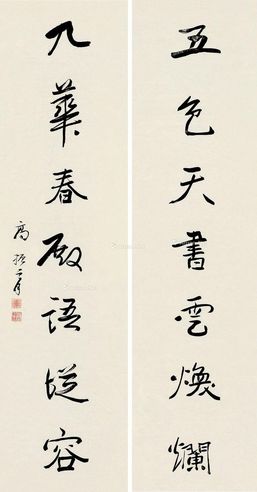 五色天書雲煥爛
九華春殿語從容
高振霄